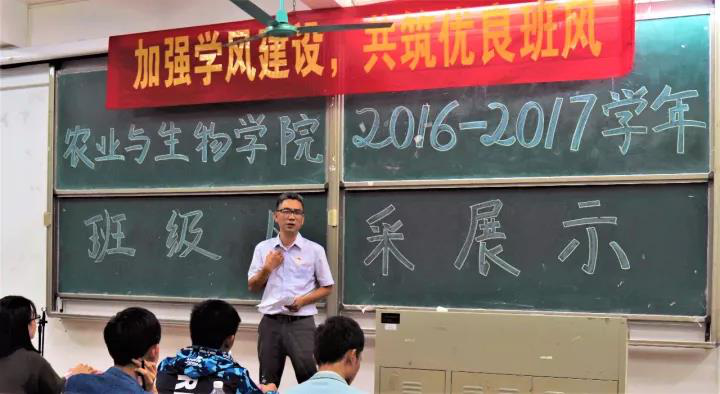 加强学风建设，共筑优良班风
农业与生物学院 2016-2017学年
班级 采展示